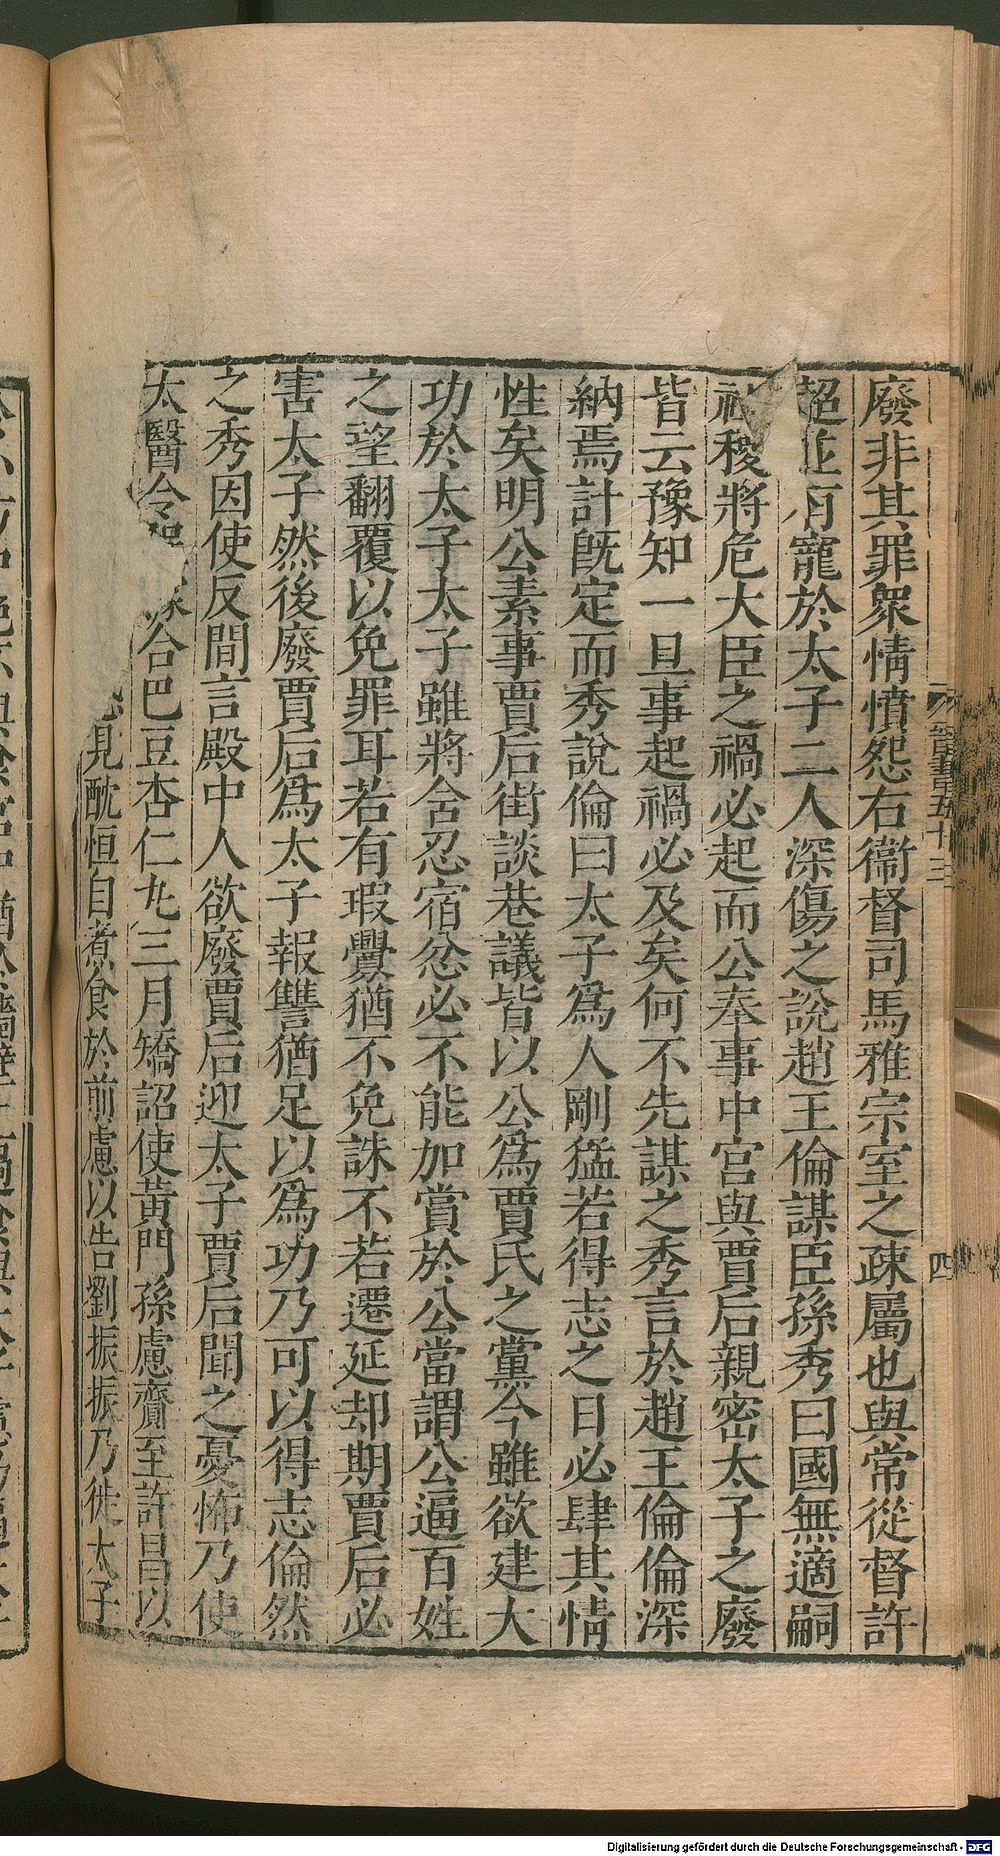 廢非其罪衆情憤怨右衞督司馬雅宗室之疎屬也與常從督許
超並有寵於太子二人深傷之說趙王倫謀臣孫秀曰國無適嗣
社稷將危大臣之禍必起而公奉事中宮與賈后親密太子之廢
皆云豫知一旦事起禍必及矣何不先謀之秀言於趙王倫倫深
納焉計旣定而秀說倫曰太子爲人剛猛若得志之日必肆其情
性矣明公素事賈后街談巷議皆以公爲賈氏之黨今雖欲建大
功於太子太子雖將含忍宿忿必不能加賞於公當謂公逼百姓
之望翻覆以免罪耳若有瑕釁猶不免誅不若遷延却期賈后必
害太子然後廢賈后爲太子報讐猶足以爲功乃可以得志倫然
之秀因使反間言殿中人欲廢賈后迎太子賈后聞之憂怖乃使
太醫令 合巴豆杏仁丸三月矯詔使黃門孫慮齎至許昌以
見酖恒自煮食於前慮以告劉振振乃徙太子
晉書五十三
四
Digitalisierung gefördert durch die Deutsche Forschungsgemeinschaft - DFG